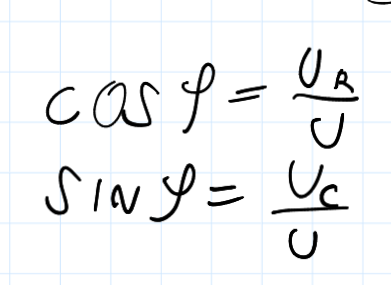 cos φ = U_R / U
sin φ = U_C / U